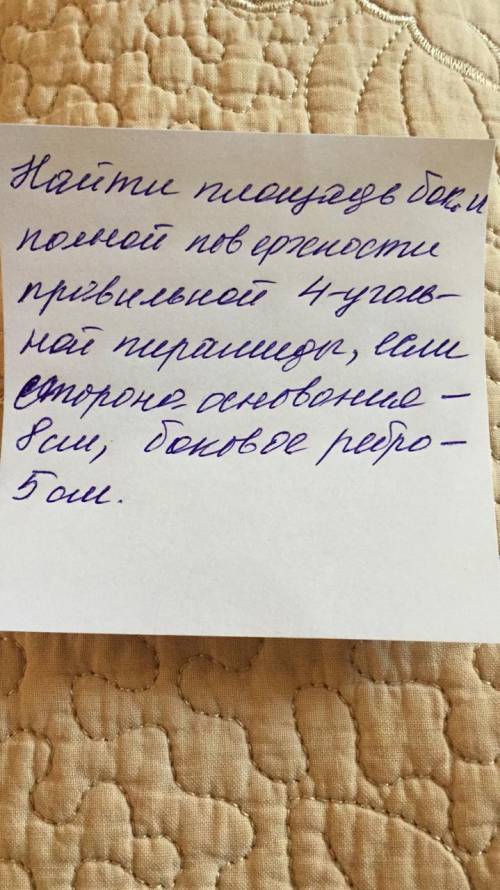 Найти площадь бок. и
полной поверхности
правильной 4-уголь-
ной пирамиды, если
сторона основания -
8см, боковое ребро -
5см.